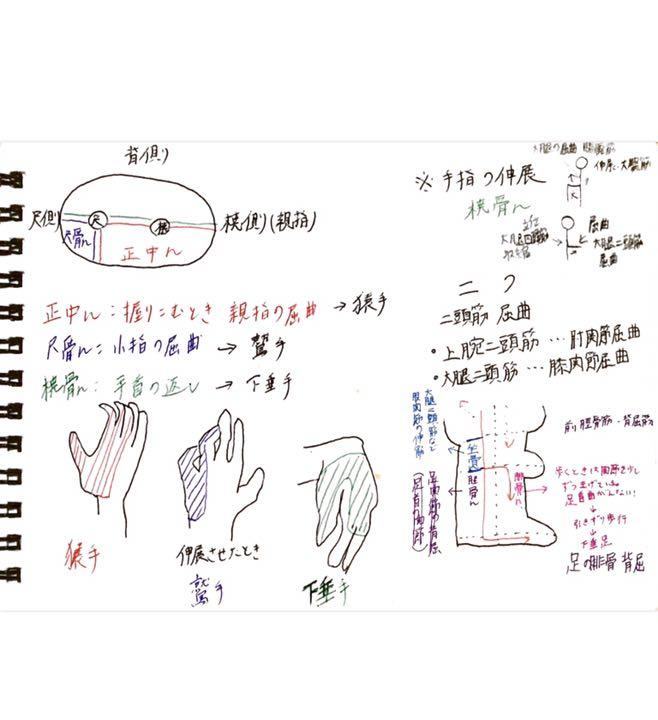 背側
尺側
尺
橈
橈側(親指)
尺骨ん
正中ん
正中ん：握りこむとき 親指の屈曲 → 猿手
尺骨ん：小指の屈曲 → 鷲手
橈骨ん：手首の返し → 下垂手
猿手
伸展させたとき
鷲手
下垂手
※ 手指の伸展
橈骨ん
大腿の屈曲
伸展
屈曲
大腿二頭筋
屈曲
ニ ク
二頭筋 屈曲
・上腕二頭筋 … 肘関節屈曲
・大腿二頭筋 … 膝関節屈曲
大腿二頭筋など
股関節の伸筋
坐骨
脛骨ん
腓骨ん
足関節の背屈
前脛骨筋・背屈筋
歩くときは関節を少し
ずつ上げている
引きずり歩行
↓
下垂足
足の腓骨 背屈